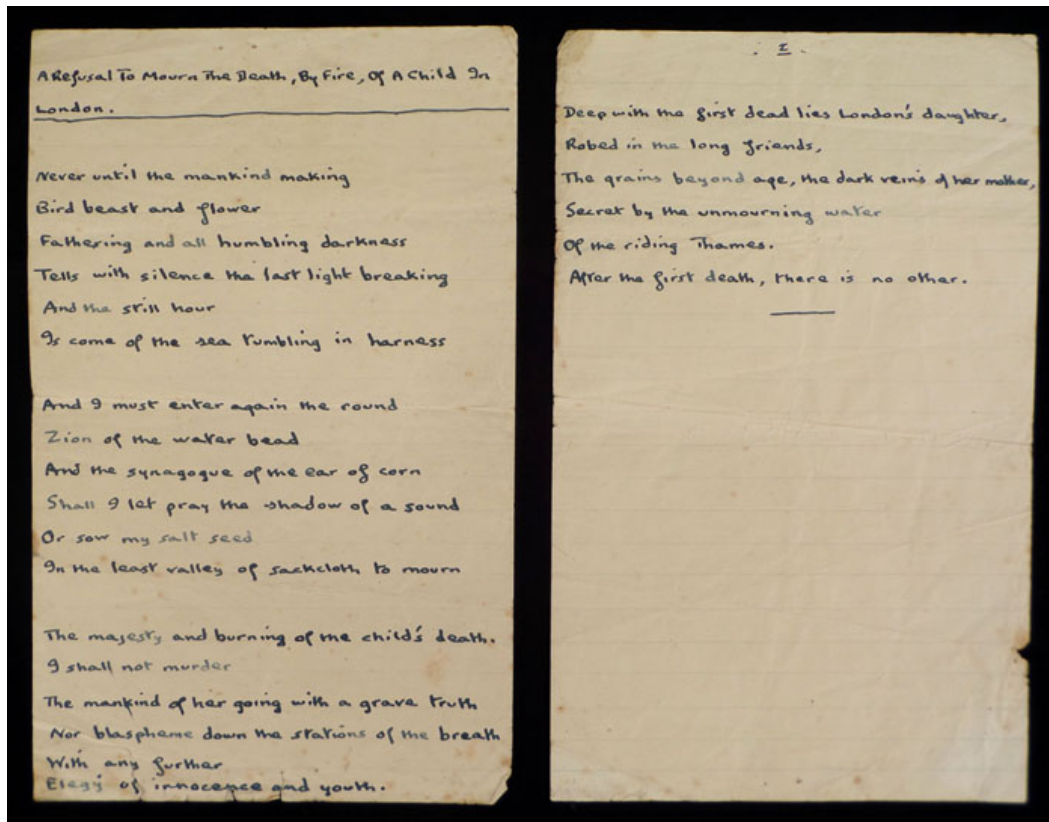 A Refusal To Mourn The Death, By Fire, Of A Child In
London.
Never until the mankind making
Bird beast and flower
Fathering and all humbling darkness
Tells with silence the last light breaking
And the still hour
Is come of the sea tumbling in harness
And I must enter again the round
Zion of the water bead
And the synagogue of the ear of corn
Shall I let pray the shadow of a sound
Or sow my salt seed
In the least valley of sackcloth to mourn
The majesty and burning of the child's death.
I shall not murder
The mankind of her going with a grave truth
Nor blaspheme down the stations of the breath
With any further
Elegy of innocence and youth.
I
Deep with the first dead lies London's daughter,
Robed in the long friends,
The grains beyond age, the dark veins of her mother,
Secret by the unmourning water
Of the riding Thames.
After the first death, there is no other.